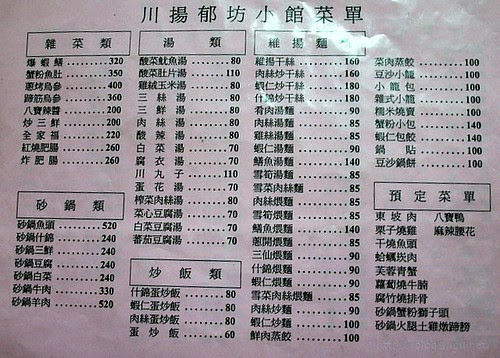 川揚郁坊小館菜單
雜菜類
爆蝦鱔 320
蟹粉魚肚 350
蔥烤烏參 400
蹄筋烏參 360
八寶辣醬 200
炒三鮮 200
全家福 220
紅燒肥腸 260
炸肥腸 260
砂鍋類
砂鍋魚頭 520
砂鍋什錦 240
砂鍋三鮮 240
砂鍋豆腐 240
砂鍋白菜 240
砂鍋牛肉 330
砂鍋羊肉 520
湯類
酸菜魷魚湯 80
酸菜肚片湯 110
雞絨玉米湯 80
三絲湯 80
三鮮湯 80
肉絲湯 80
酸辣湯 80
白菜湯 70
腐衣湯 70
川丸子 110
蛋花湯 70
榨菜肉絲湯 80
菜心豆腐湯 70
白菜豆腐湯 70
蕃茄豆腐湯 70
炒飯類
什錦蛋炒飯 80
蝦仁蛋炒飯 80
肉絲蛋炒飯 80
蛋炒飯 60
維揚麵類
維揚干絲 160
肉絲炒干絲 160
蝦仁炒干絲 180
什錦炒干絲 180
肴肉湯麵 90
肉絲湯麵 85
雞絲湯麵 85
蝦仁湯麵 90
鱔魚湯麵 140
雪筍湯麵 85
雪菜肉絲麵 85
肉絲煨麵 85
雪筍煨麵 85
鱔魚煨麵 140
蔥開煨麵 85
三仙煨麵 90
什錦煨麵 90
蝦仁煨麵 90
雪菜肉絲煨麵 85
肉絲炒麵 90
蝦仁炒麵 100
鮮肉蒸餃 100
菜肉蒸餃 100
豆沙小籠 100
小籠包 100
雜式小籠 100
糯米燒賣 100
蟹粉小包 140
蝦仁包餃 140
鍋貼 100
豆沙鍋餅 100
預定菜單
東坡肉 八寶鴨
栗子燒雞 麻辣腰花
干燒魚頭
蛤蠣崁肉
芙蓉青蟹
蘿蔔燒牛腩
腐竹燒排骨
砂鍋蟹粉獅子頭
砂鍋火腿土雞燉蹄膀